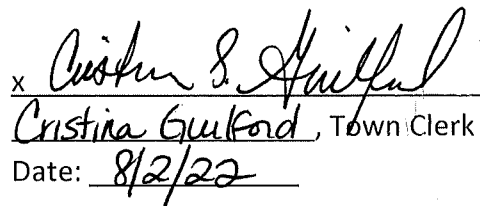 x Cristina S. Guilford
Cristina Guilford, Town Clerk
Date: 8/2/22